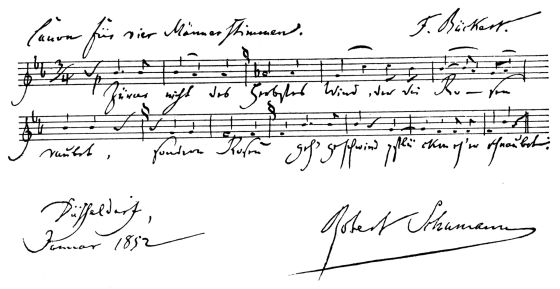 Canon für vier Männerstimmen. F. Rückert.
3/4
Zürne nicht des Herbstes Wind, der die Ro-sen
raubet, sondern Rosen geh' geschwind pflücken eh' er schnaubet.
Düsseldorf,
Januar 1852
Robert Schumann